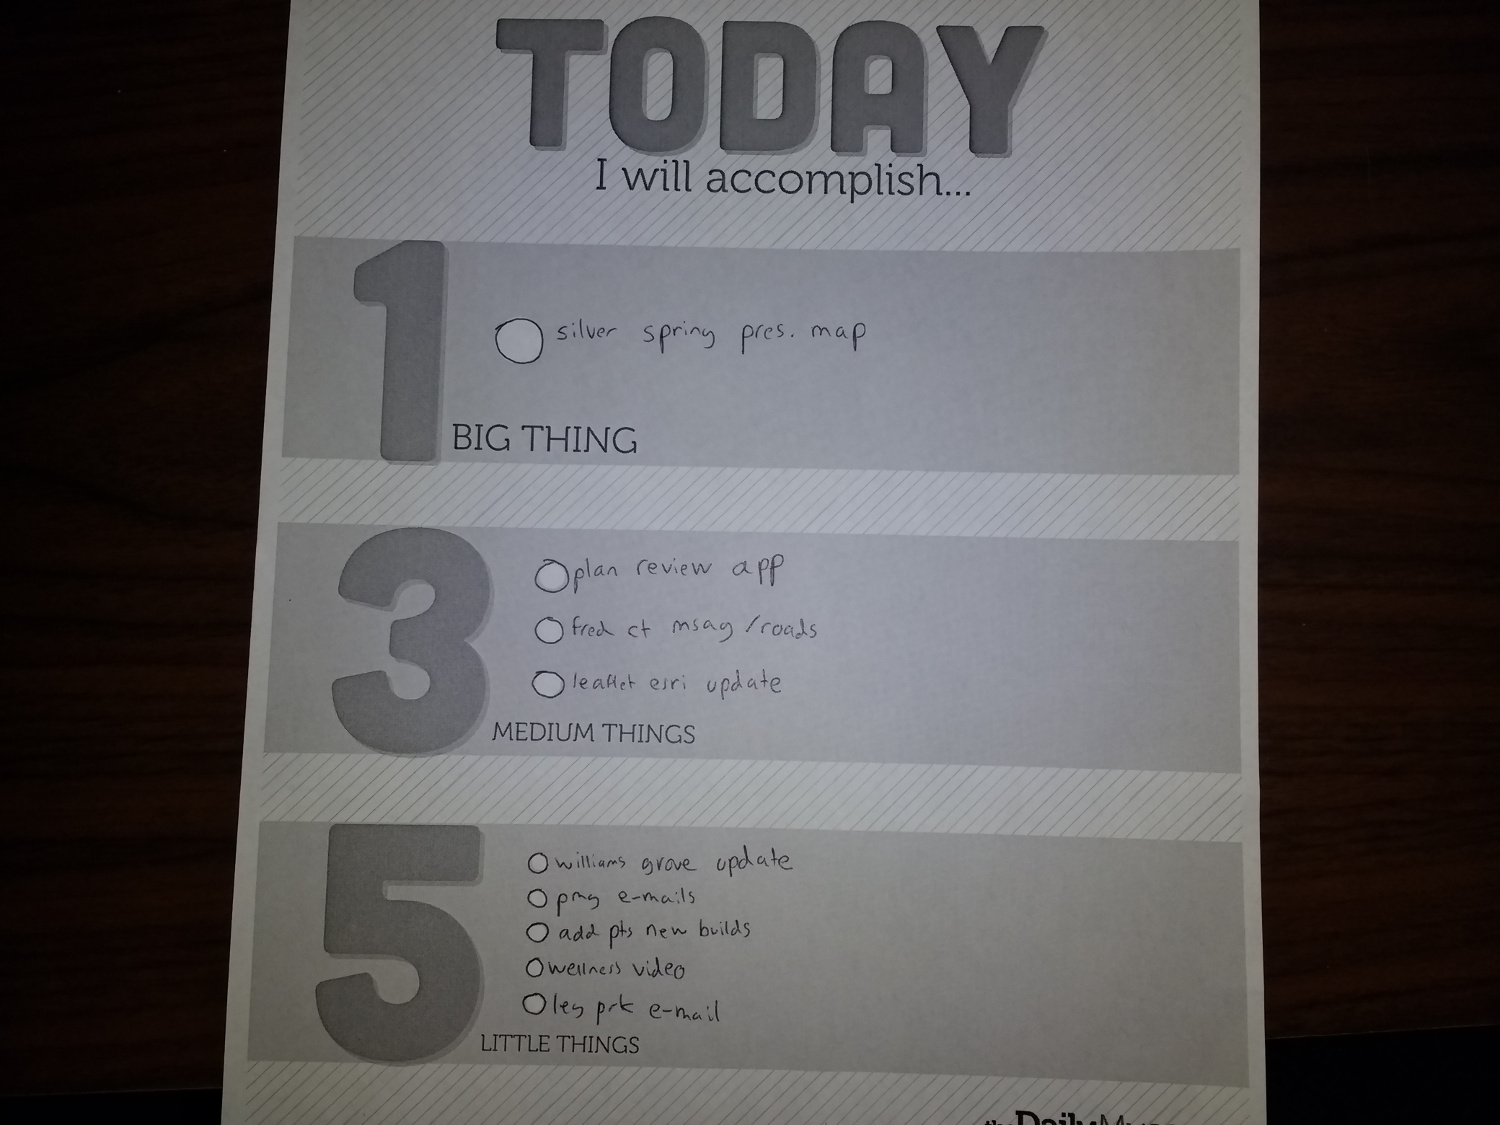 TODAY
I will accomplish...
1
silver spring pres. map
BIG THING
3
plan review app
fred ct msag/roads
leaflet esri update
MEDIUM THINGS
5
williams grove update
pmg e-mails
add pts new builds
wellness video
leg prk e-mail
LITTLE THINGS
the Daily